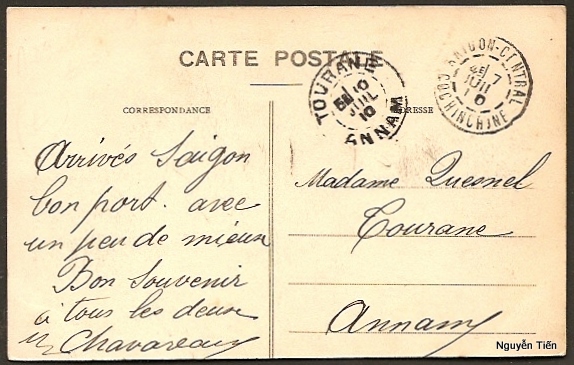 CARTE POSTALE
CORRESPONDANCE
ADRESSE
TOURANE
10
JUIL
10
ANNAM
SAIGON-CENTRAL
7
JUIL
COCHINCHINE
Arrivés Saigon
bon port. avec
un peu de mieux
Bon Souvenir
à tous les deux
Chavareau
Madame Quesnel
Tourane
Annam
Nguyễn Tiến